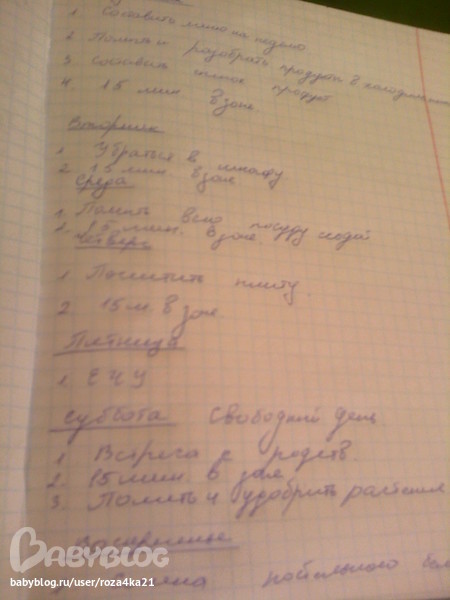 1. Составить меню на неделю
2. Помыть и разобрать продукты в холодильнике
3. список продукт
4. 15 мин в зоне.
Вторник
1. Убраться в шкафу
2. 15 мин в зоне
Среда
1. Помыть всю посуду содой
2. 15 мин. в зоне.
Четверг
1. Почистить плиту.
2. 15 м. в зоне
Пятница
1. ЕЧУ
Суббота свободный день
1. Встреча с родств.
2. 15 мин. в зоне
3. Полить и удобрить растения
Воскресенье
постельного
BABYBLOG
babyblog.ru/user/roza4ka21